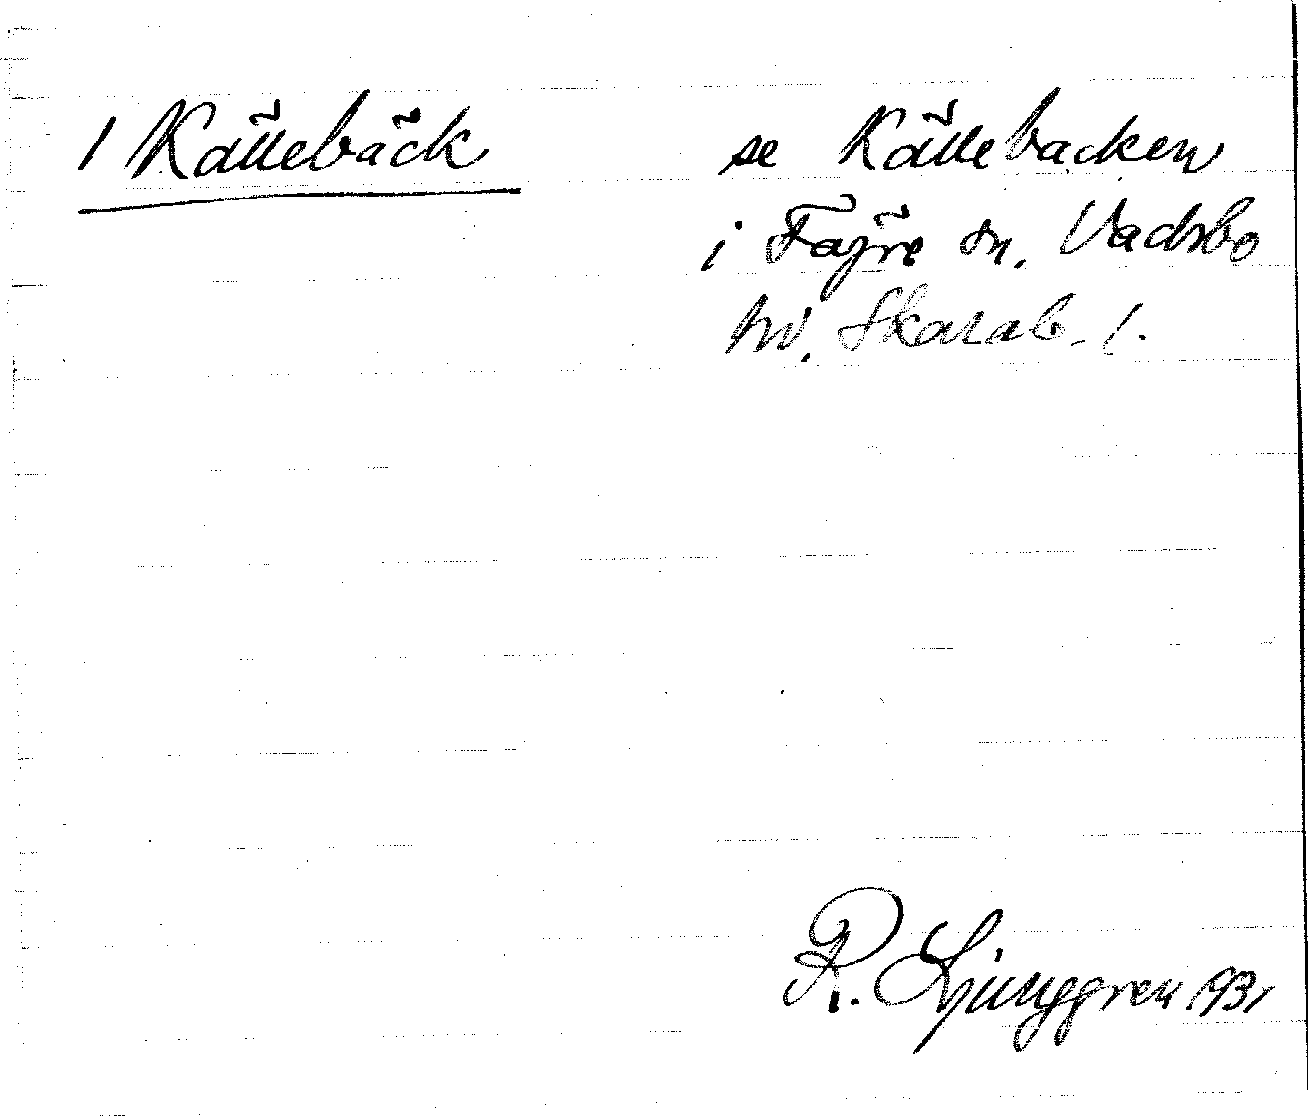 1 Källebäck se Källebacken
i Fägre sn, Vadsbo
hd, Skarab. l.
R. Ljunggren 1931